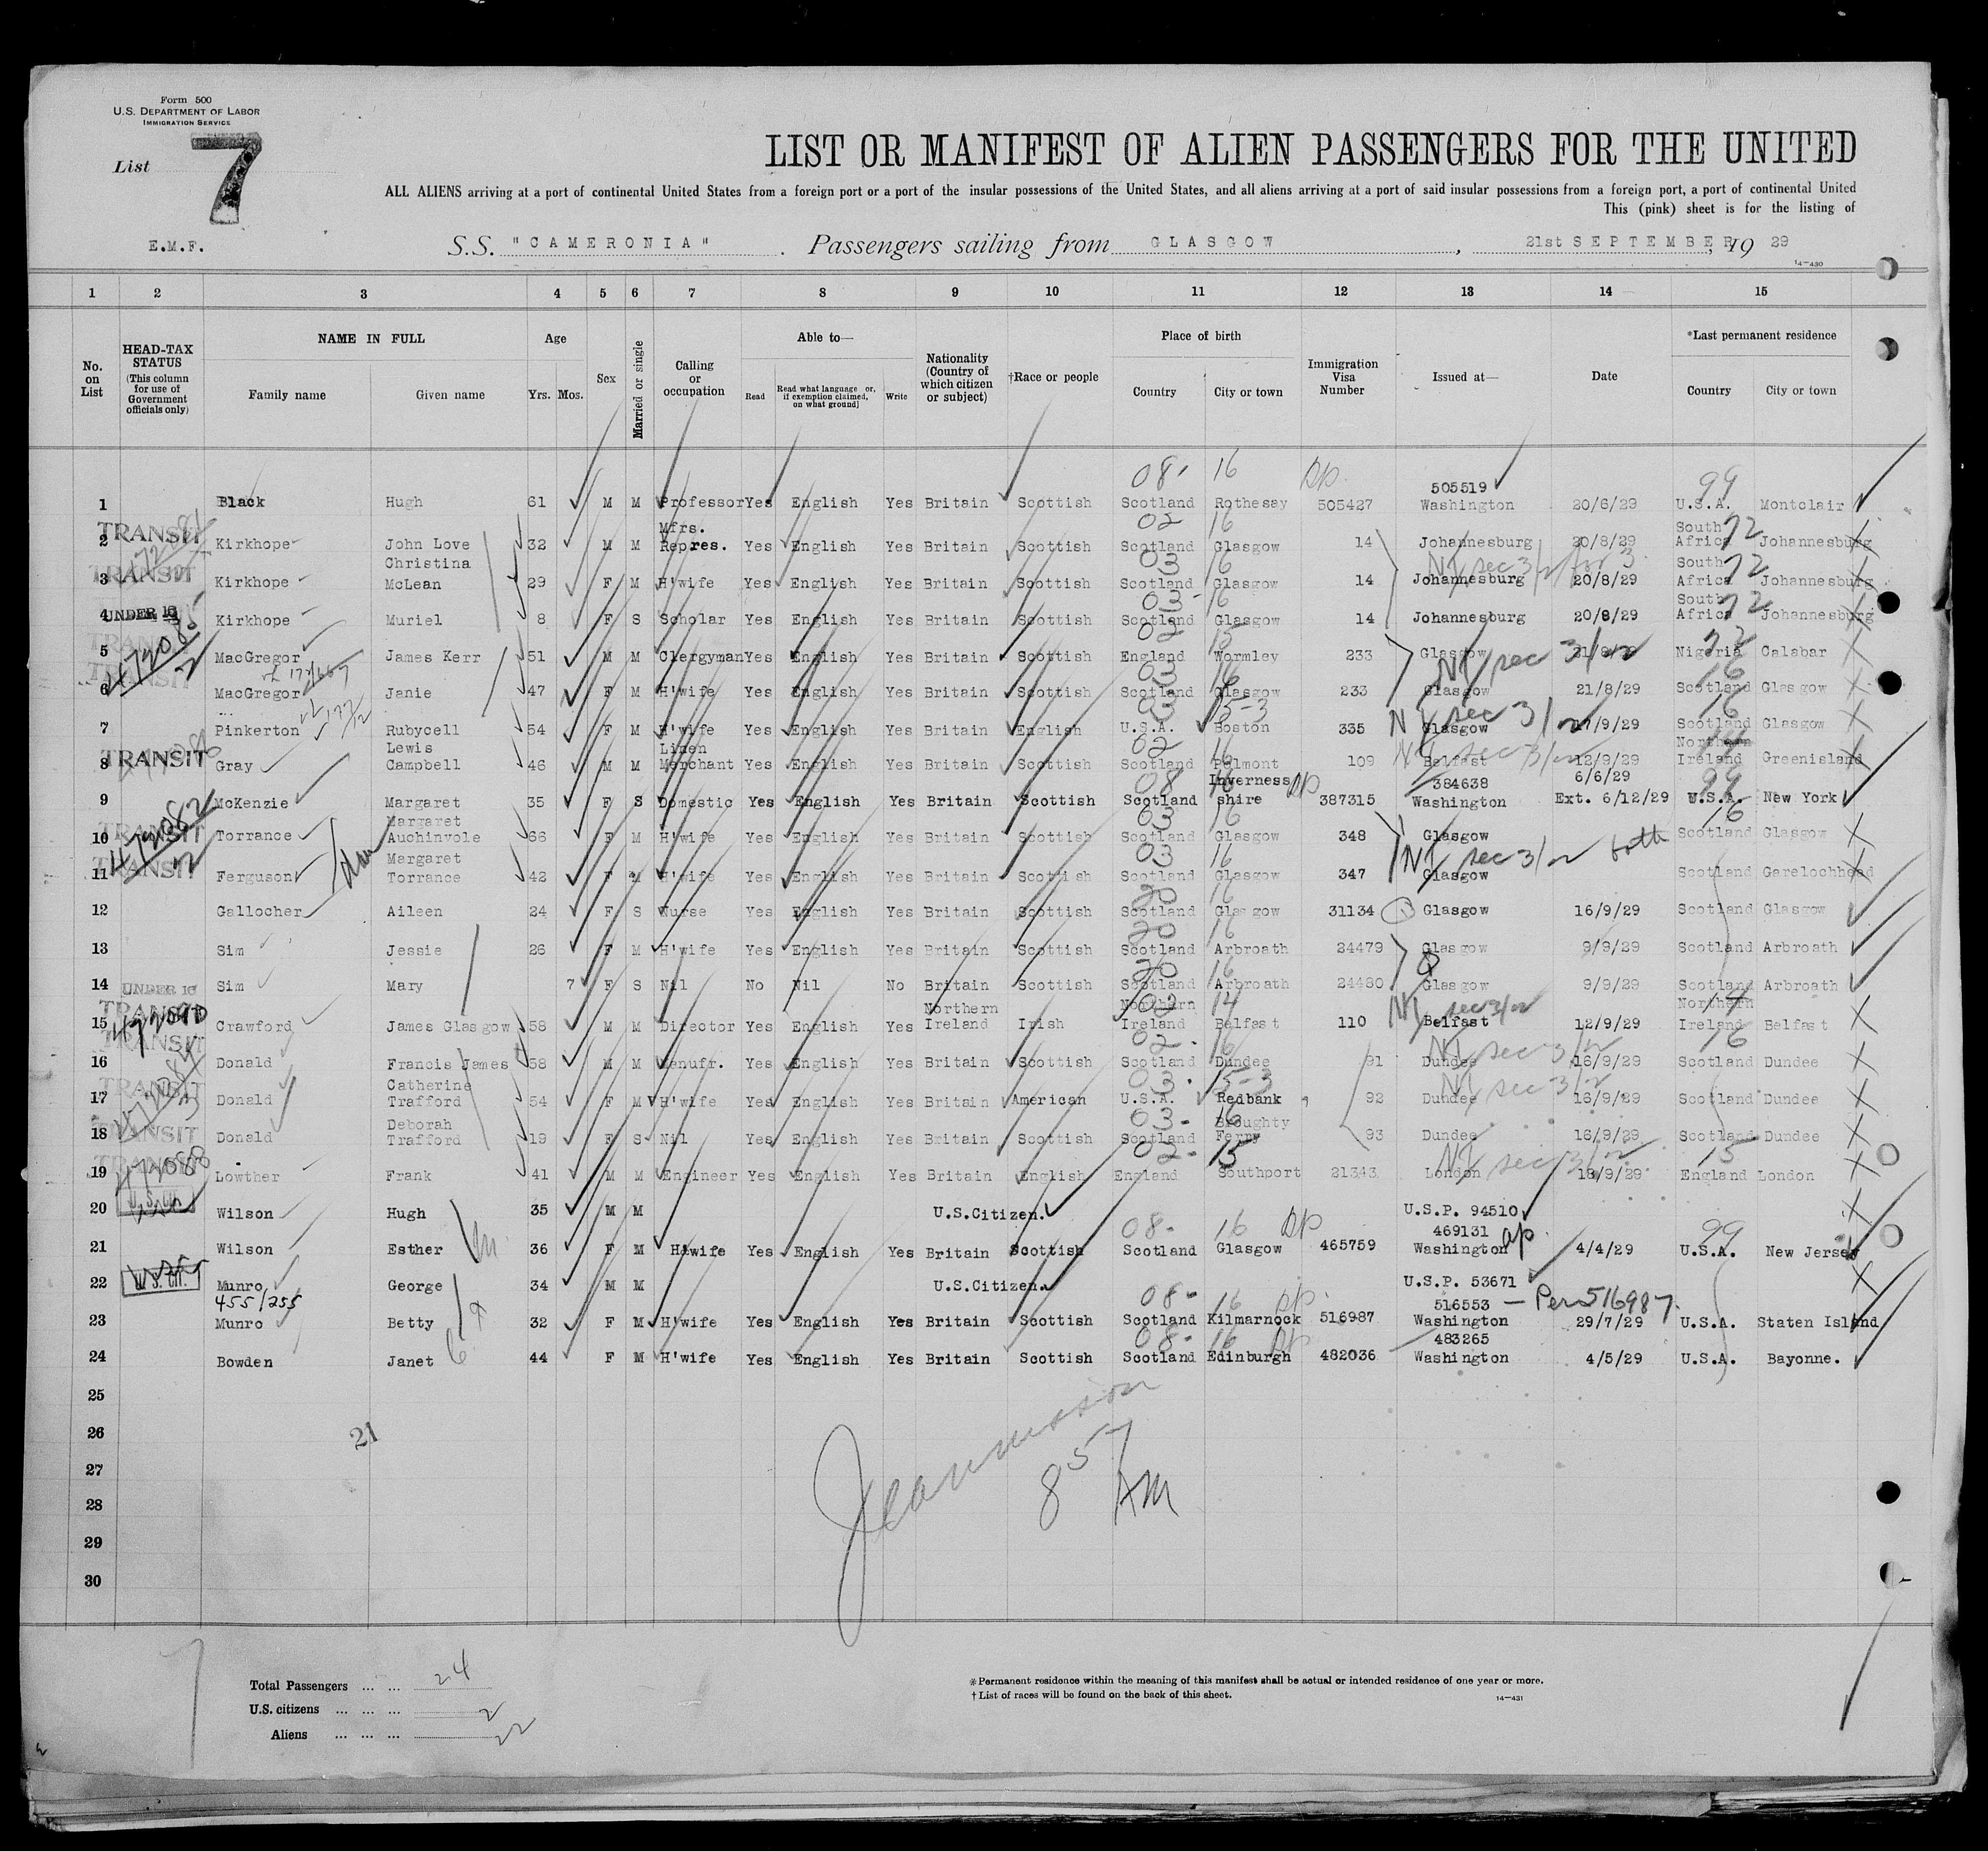 Form 500
U.S. DEPARTMENT OF LABOR
IMMIGRATION SERVICE
List 7
LIST OR MANIFEST OF ALIEN PASSENGERS FOR THE UNITED
ALL ALIENS arriving at a port of continental United States from a foreign port or a port of the insular possessions of the United States, and all aliens arriving at a port of said insular possessions from a foreign port, a port of continental United
This (pink) sheet is for the listing of
E.M.F.
S.S. "CAMERONIA". Passengers sailing from GLASGOW, 21st SEPTEMBER, 19 29
14—430
1 2 3 4 5 6 7 8 9 10 11 12 13 14 15
No. on List
HEAD-TAX STATUS (This column for use of Government officials only)
NAME IN FULL
Family name Given name
Age
Yrs. Mos.
Sex
Married or single
Calling or occupation
Able to—
Read Read what language or, if exemption claimed, on what ground] Write
Nationality (Country of which citizen or subject)
†Race or people
Place of birth
Country City or town
Immigration Visa Number
Issued at—
Date
*Last permanent residence
Country City or town
08- 16 99
505519
1 Black Hugh 61 M M Professor Yes English Yes Britain Scottish Scotland Rothesay 505427 Washington 20/6/29 U.S.A. Montclair
02 16 72
2 TRANSIT Kirkhope John Love 32 M M Mfrs. Repres. Yes English Yes Britain Scottish Scotland Glasgow 14 Johannesburg 20/8/29 South Africa Johannesburg
03 16 NT sec 3/2 for 3 72
3 TRANSIT Kirkhope Christina McLean 29 F M H'wife Yes English Yes Britain Scottish Scotland Glasgow 14 Johannesburg 20/8/29 South Africa Johannesburg
03- 16 72
4 UNDER 16 Kirkhope Muriel 8 F S Scholar Yes English Yes Britain Scottish Scotland Glasgow 14 Johannesburg 20/8/29 South Africa Johannesburg
472085
2
02 15 72
5 TRANSIT MacGregor James Kerr 51 M M Clergyman Yes English Yes Britain Scottish England Wormley 233 Glasgow 21/8/29 Nigeria Calabar
03 16 NT sec 3/2 16
6 TRANSIT MacGregor Janie 47 F M H'wife Yes English Yes Britain Scottish Scotland Glasgow 233 Glasgow 21/8/29 Scotland Glasgow
03 15-3 NT sec 3/2 16
7 Pinkerton Rubycell 54 F M H'wife Yes English Yes Britain English U.S.A. Boston 335 Glasgow 17/9/29 Scotland Glasgow
02 16 NT sec 3/2 14
8 TRANSIT Gray Lewis Campbell 46 M M Linen Merchant Yes English Yes Britain Scottish Scotland Belmont 109 Belfast 12/9/29 Northern Ireland Greenisland
08 16 99
384638 6/6/29
9 McKenzie Margaret 35 F S Domestic Yes English Yes Britain Scottish Scotland Inverness shire 387315 Washington Ext. 6/12/29 U.S.A. New York
472082
2
03 16 16
10 TRANSIT Torrance Margaret Auchinvole 66 F M H'wife Yes English Yes Britain Scottish Scotland Glasgow 348 Glasgow Scotland Glasgow
03 16 NT sec 3/2 both
11 TRANSIT Ferguson Margaret Torrance 42 F M H'wife Yes English Yes Britain Scottish Scotland Glasgow 347 Glasgow Scotland Garelochhead
20 16
12 Gallocher Aileen 24 F S Nurse Yes English Yes Britain Scottish Scotland Glasgow 31134 Glasgow 16/9/29 Scotland Glasgow
20 16
13 Sim Jessie 26 F M H'wife Yes English Yes Britain Scottish Scotland Arbroath 24479 Glasgow 9/9/29 Scotland Arbroath
20 16
14 UNDER 16 Sim Mary 7 F S Nil No Nil No Britain Scottish Scotland Arbroath 24480 Glasgow 9/9/29 Scotland Arbroath
02 14 NT sec 3/2 4
15 TRANSIT Crawford James Glasgow 58 M M Director Yes English Yes Northern Ireland Irish Northern Ireland Belfast 110 Belfast 12/9/29 Northern Ireland Belfast
02. 16 NT sec 3/2 16
16 TRANSIT Donald Francis James 58 M M Manufr. Yes English Yes Britain Scottish Scotland Dundee 91 Dundee 16/9/29 Scotland Dundee
03. 15-3 NT sec 3/2
17 TRANSIT Donald Catherine Trafford 54 F M H'wife Yes English Yes Britain American U.S.A. Redbank 92 Dundee 16/9/29 Scotland Dundee
03- 16
18 TRANSIT Donald Deborah Trafford 19 F S Nil Yes English Yes Britain Scottish Scotland Broughty Ferry 93 Dundee 16/9/29 Scotland Dundee
472088
02- 15 NT sec 3/2 15
19 TRANSIT Lowther Frank 41 M M Engineer Yes English Yes Britain English England Southport 21343 London 18/9/29 England London
20 U.S. CIT. Wilson Hugh 35 M M U.S.Citizen. U.S.P. 94510
08- 16 99
469131
21 Wilson Esther 36 F M H'wife Yes English Yes Britain Scottish Scotland Glasgow 465759 Washington 4/4/29 U.S.A. New Jersey
22 U.S. CIT. Munro George 34 M M U.S.Citizen. U.S.P. 53671
455/255
08- 16
516553 — Per 516987
23 Munro Betty 32 F M H'wife Yes English Yes Britain Scottish Scotland Kilmarnock 516987 Washington 29/7/29 U.S.A. Staten Island
08- 16
483265
24 Bowden Janet 44 F M H'wife Yes English Yes Britain Scottish Scotland Edinburgh 482036 Washington 4/5/29 U.S.A. Bayonne.
25
26
21
27
28
8 57 AM
29
30
Total Passengers ... ... 24
U.S. citizens ... ... ... 2
Aliens ... ... ... 22
*Permanent residence within the meaning of this manifest shall be actual or intended residence of one year or more.
†List of races will be found on the back of this sheet.
14—431